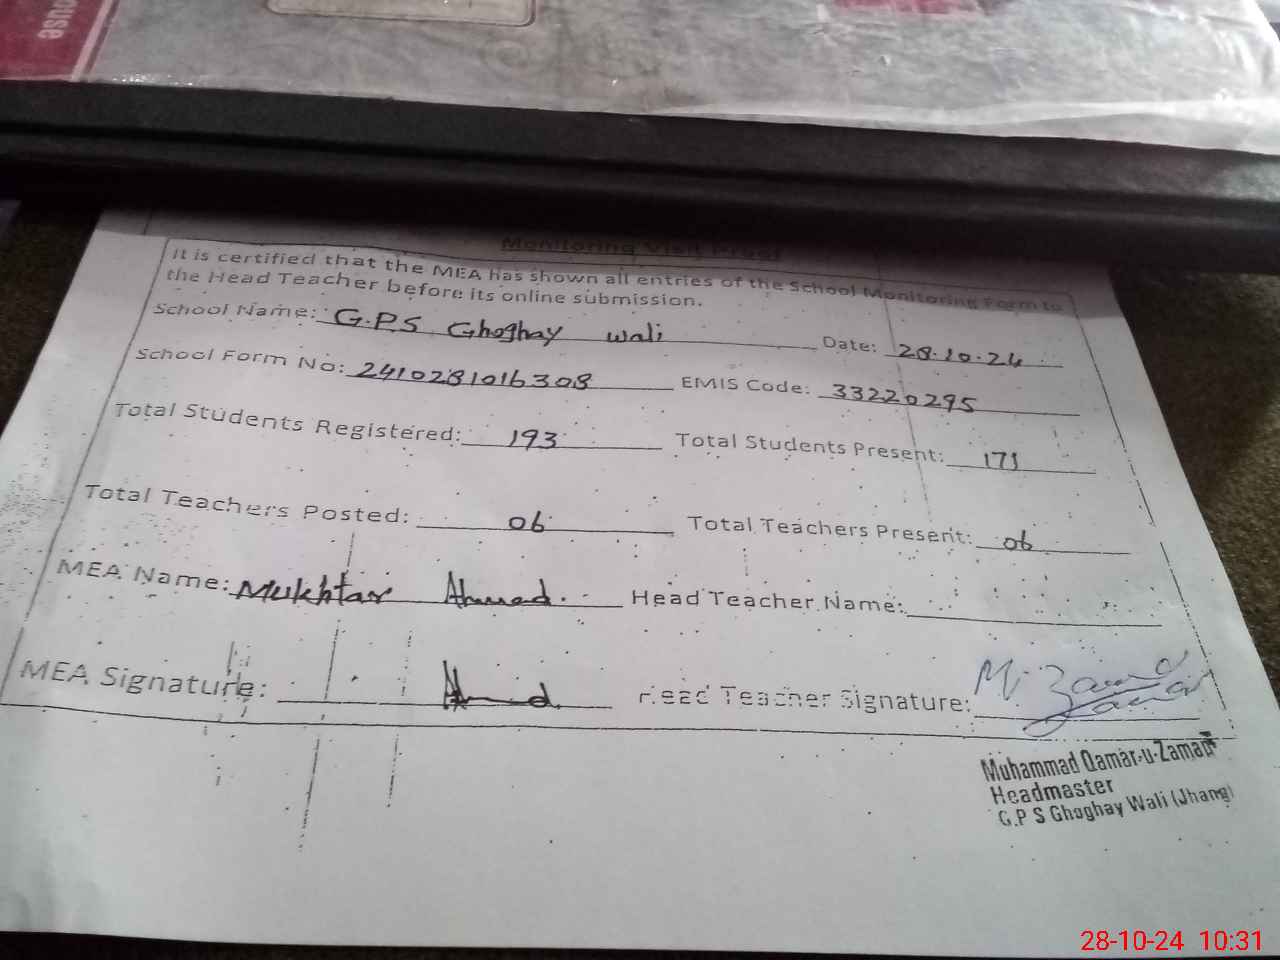 ouse
Monitoring Visit Proof
It is certified that the MEA has shown all entries of the School Monitoring Form to
the Head Teacher before its online submission.
School Name: G.P.S Ghoghay wali Date: 28.10.24
School Form No: 2410281016308 EMIS Code: 33220295
Total Students Registered: 193 Total Students Present: 171
Total Teachers Posted: 06 Total Teachers Present: 06
MEA Name: Mukhtar Ahmad. Head Teacher Name:
MEA Signature: Ahmad Head Teacher Signature: M. Zaman
Muhammad Qamar-u-Zaman
Headmaster
G.P S Ghoghay Wali (Jhang)
28-10-24 10:31